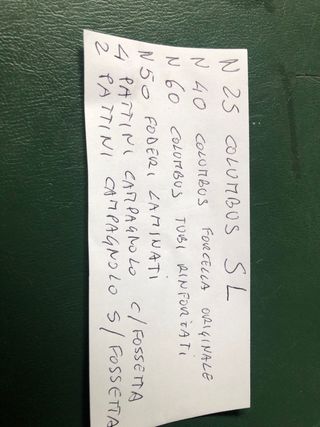 N 25 COLUMBUS SL
N 40 COLUMBUS FORCELLA ORIGINALE
N 60 COLUMBUS TUBI RINFORZATI
N 50 FODERI LAMINATI
4 PATTINI CAMPAGNOLO C/FOSSETTA
2 PATTINI CAMPAGNOLO S/FOSSETTA